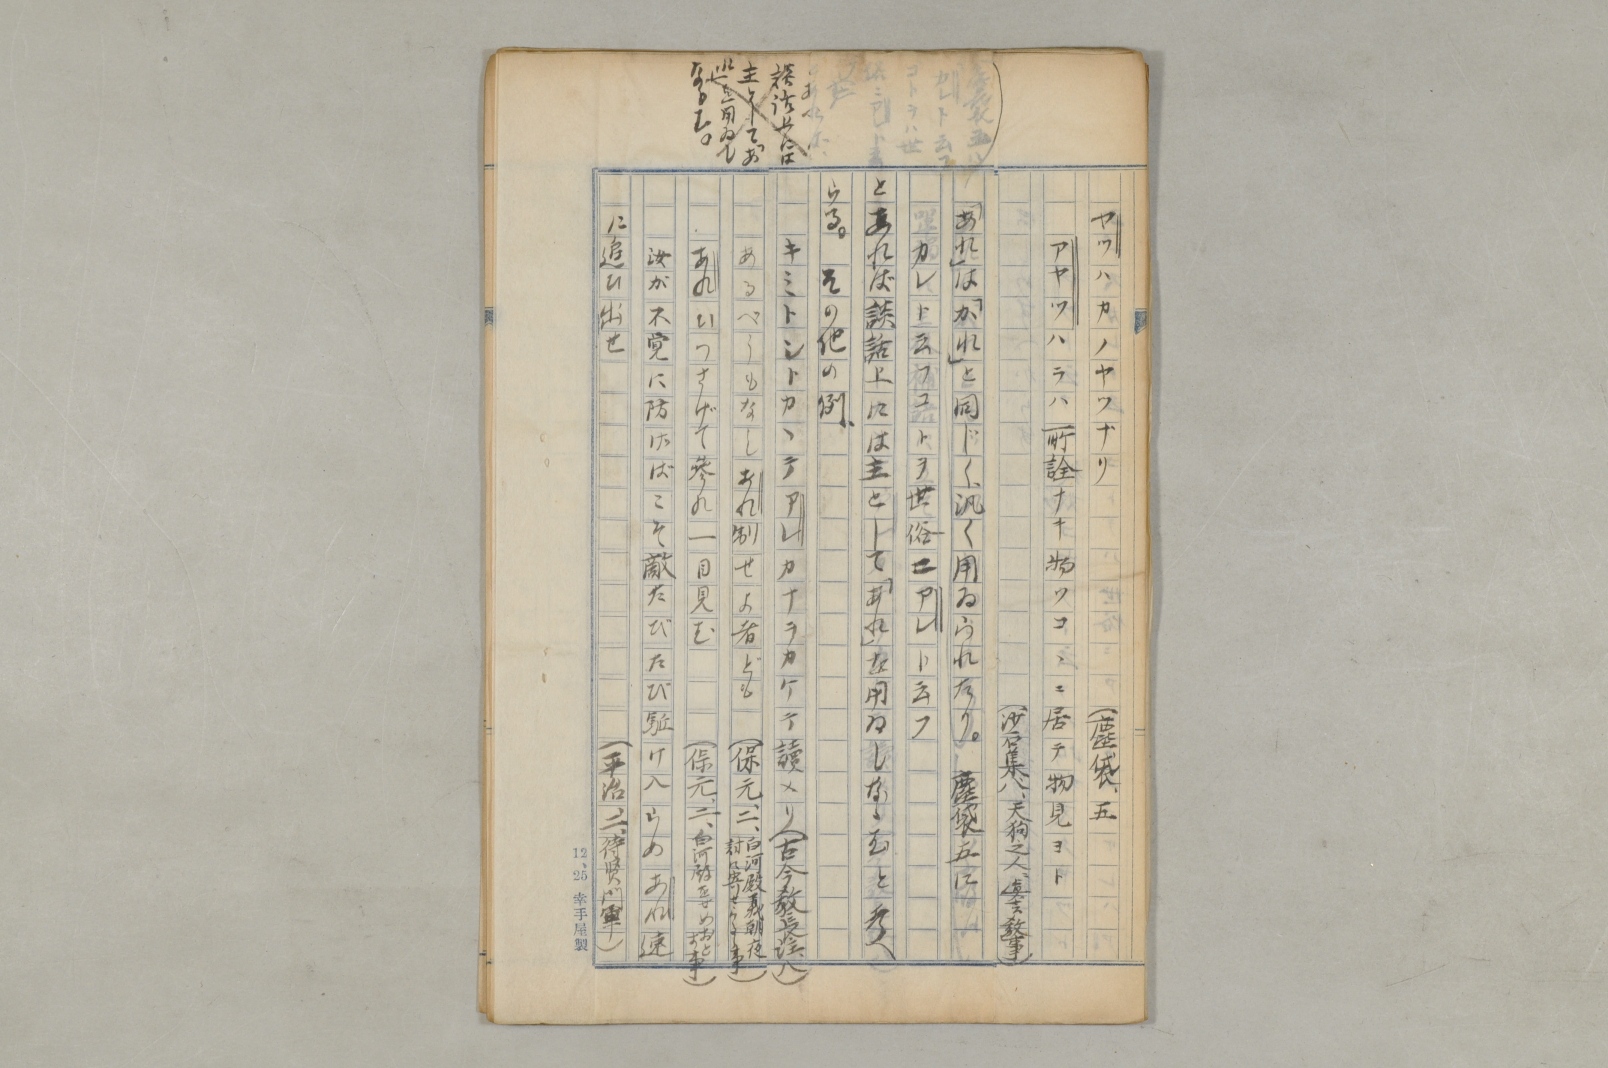 ヤツハカノヤツナリ　(塵袋、五
アヤツハラハ所詮ナキ物ツコヽニ居テ物見ヨト
(沙石集八、天狗之人真言教事)
「あれ」は「かれ」と同じく、汎く用ゐられたり。塵袋五に
カレト云フコトヲ世俗ニアレト云フ
とあれば談話上には主として「あれ」を用ゐしなるむと考へ
らる。その他の例、
キミトシトカヽテアレカナヲカケテ讀メリ(古今教長註八)
あるべうもなしあれ制せよ者ども　(保元、二、白河殿義朝夜討に寄せらるゝ事)
あれひつさげて参れ一目見む　(保元、二、白河殿
汝が不覚に防げばこそ敵たびたび駈け入らめあれ速
に追ひ出せ　(平治、二、待賢門軍)
談話上には
主としてあ
れを用ゐし
なるむ。
12、25 幸手屋製